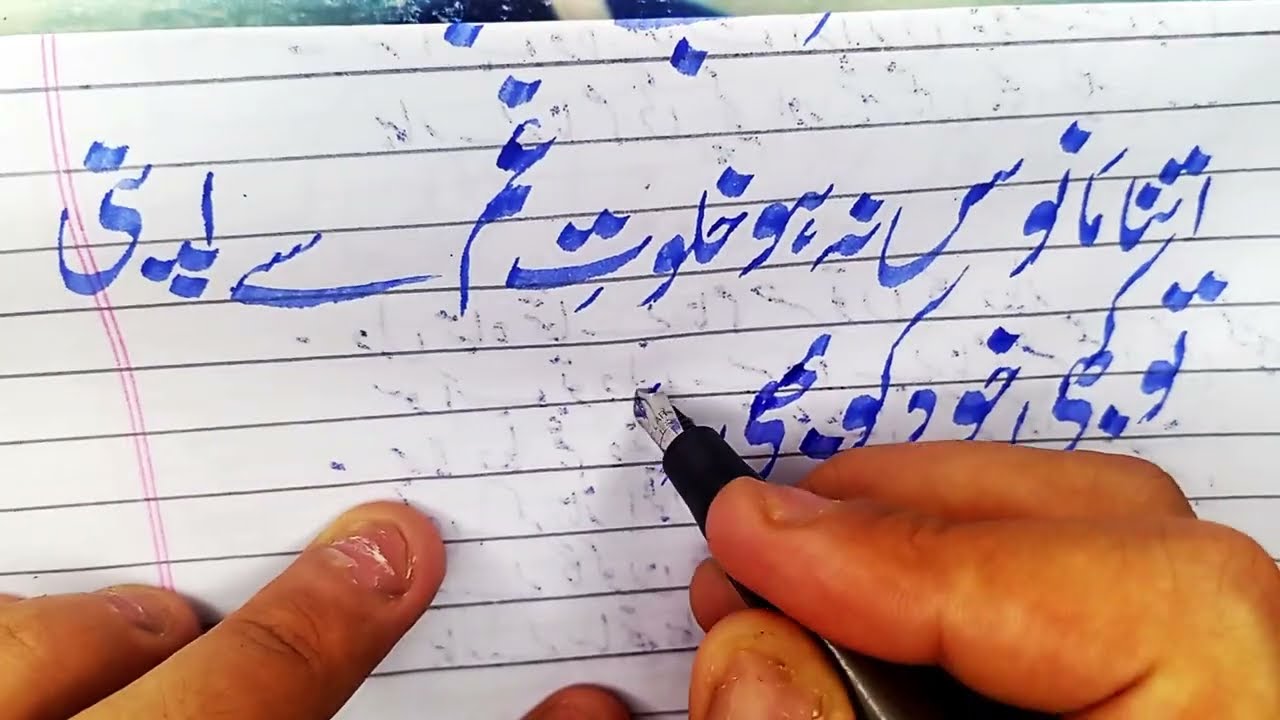 اتنا مانوس نہ ہو خلوتِ غم سے اپنی
تو کبھی خود کو بھی